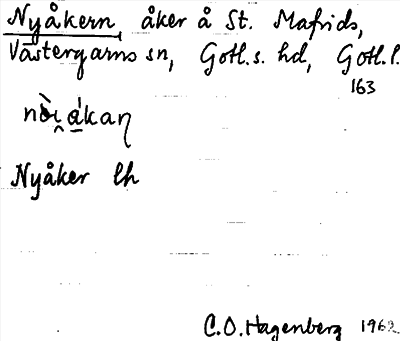 Nyåkern, åker å St. Mafrids,
Västergarns sn, Gotl. s. hd, Gotl. l.
163
Nyåker lh
C. O. Hagenberg 1962